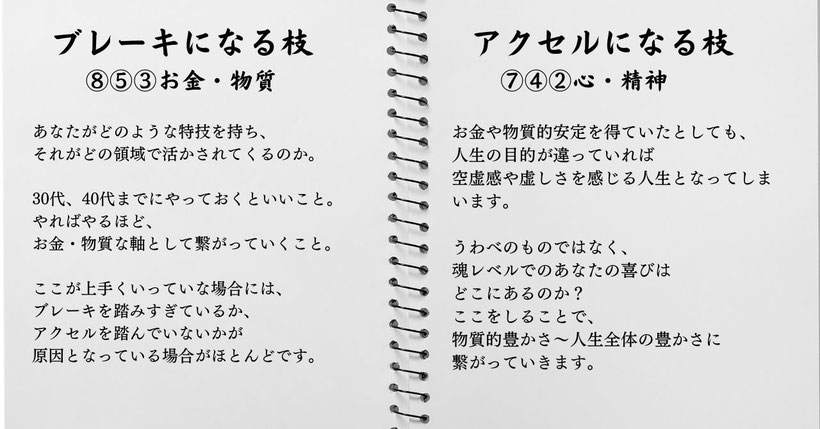 ブレーキになる枝
⑧⑤③お金・物質
あなたがどのような特技を持ち、
それがどの領域で活かされてくるのか。
30代、40代までにやっておくといいこと。
やればやるほど、
お金・物質な軸として繋がっていくこと。
ここが上手くいっていな場合には、
ブレーキを踏みすぎているか、
アクセルを踏んでいないかが
原因となっている場合がほとんどです。
アクセルになる枝
⑦④②心・精神
お金や物質的安定を得ていたとしても、
人生の目的が違っていれば
空虚感や虚しさを感じる人生となってしま
います。
うわべのものではなく、
魂レベルでのあなたの喜びは
どこにあるのか？
ここをしることで、
物質的豊かさ～人生全体の豊かさに
繋がっていきます。